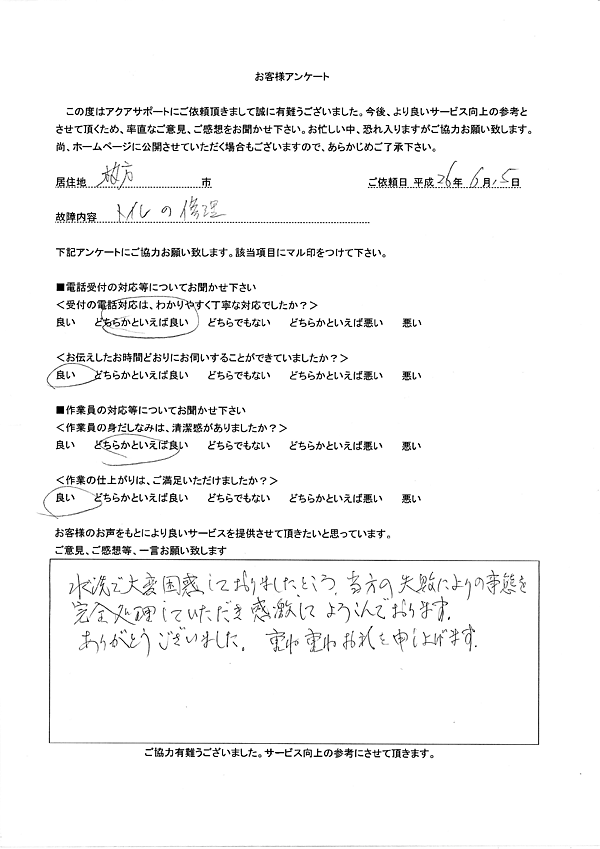 お客様アンケート
この度はアクアサポートにご依頼頂きまして誠に有難うございました。今後、より良いサービス向上の参考と
させて頂くため、率直なご意見、ご感想をお聞かせ下さい。お忙しい中、恐れ入りますがご協力お願い致します。
尚、ホームページに公開させていただく場合もございますので、あらかじめご了承下さい。
居住地 枚方 市 ご依頼日 平成 26年 6月 15日
故障内容 トイレの修理
下記アンケートにご協力お願い致します。該当項目にマル印をつけて下さい。
■電話受付の対応等についてお聞かせ下さい
＜受付の電話対応は、わかりやすく丁寧な対応でしたか？＞
良い どちらかといえば良い どちらでもない どちらかといえば悪い 悪い
＜お伝えしたお時間どおりにお伺いすることができていましたか？＞
良い どちらかといえば良い どちらでもない どちらかといえば悪い 悪い
■作業員の対応等についてお聞かせ下さい
＜作業員の身だしなみは、清潔感がありましたか？＞
良い どちらかといえば良い どちらでもない どちらかといえば悪い 悪い
＜作業の仕上がりは、ご満足いただけましたか？＞
良い どちらかといえば良い どちらでもない どちらかといえば悪い 悪い
お客様のお声をもとにより良いサービスを提供させて頂きたいと思っています。
ご意見、ご感想等、一言お願い致します
水洗で大変困惑しておりましたところ、当方の失敗によりの事態を
完全処理していただき感激して よろこんでおります。
ありがとうございました。 重ね重ねお礼を申し上げます。
ご協力有難うございました。サービス向上の参考にさせて頂きます。